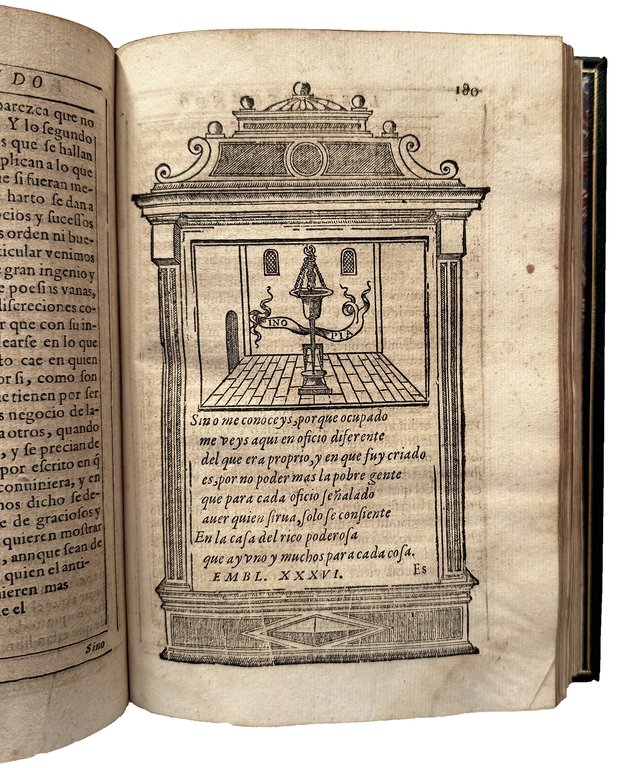 NDO
parezca que no
Y lo ſegundo
os que ſe hallan
plican a lo que
e ſi fueran me-
harto ſe dan a
ocios y ſuceſſos
s orden ni bue-
ticular venimos
s gran ingenio y
e poeſias vanas,
diſcreciones co-
r que con ſu in-
learſe en lo que
to cae en quien
or ſi, como ſon
e tienen por ſer
s negocio de la-
a otros, quando
, y ſe precian de
por eſcrito en q̃
conuiniera, y en
mos dicho ſe de-
e de gracioſos y
quieren moſtrar
, annque ſean de
quien el anti-
uieren mas
e el
Sino
180
INO PIA
Sino me conoceys, porque ocupado
me veys aqui en oficio diferente
del que era proprio, y en que fuy criado
es, por no poder mas la pobre gente
que para cada oficio ſeñalado
auer quien ſirua, ſolo ſe conſiente
En la caſa del rico poderoſa
que ay vno y muchos para cada coſa.
EMBL. XXXVI.
Es